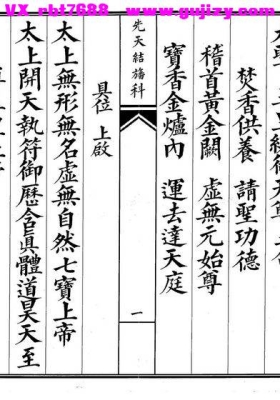 VX nbt7688 www.gujizy.com
焚香供養 請聖功德
稽首黃金闕 虛無元始尊
寶香金爐內 運去達天庭
先天結旛科
一
具位 上啟
太上無形無名虛無自然七寶上帝
太上開天執符御歷含眞體道昊天至